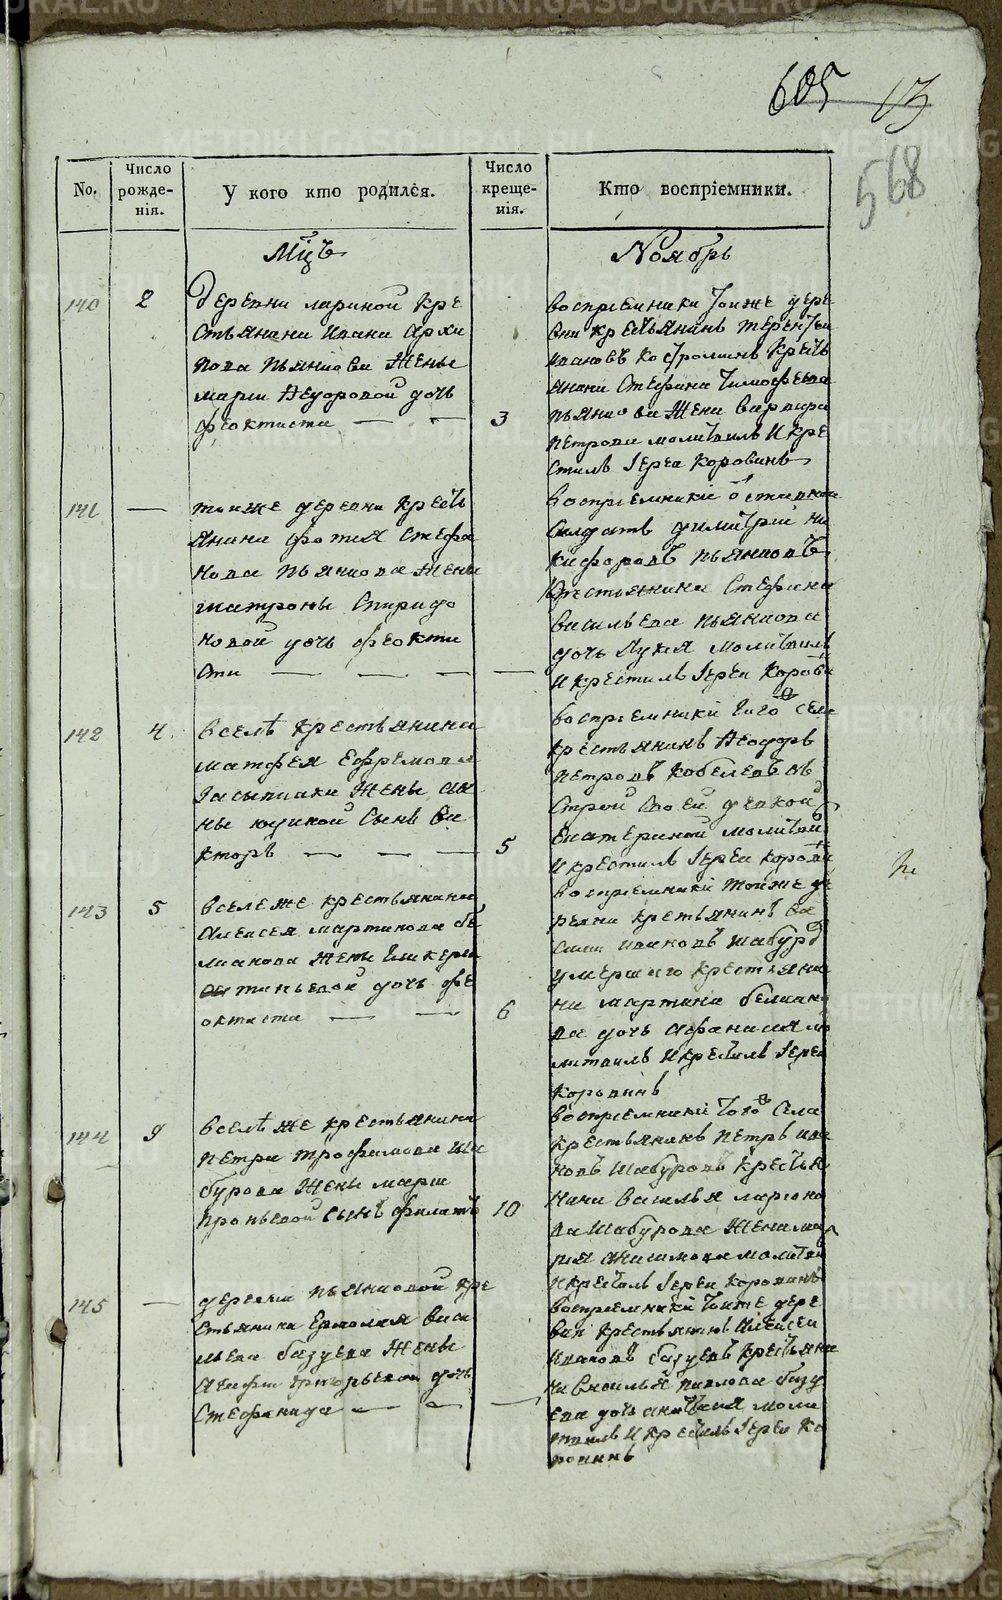 605 13
568
No. Число рожде-нія. У кого кто родился. Число креще-нія. Кто воспріемники.
Мцъ Ноябрь
140 2 Деревни лариной кре
стьянина Ивана Архи
пова пьянкова Жены
марьи Ѳедоровой дочь
феоктиста 3
воспрiемники тоиже дере
вни крестьянинъ терентеи
ивановъ костроминъ крестъ
янина Стефана тимофеева
пьянкова Жена варвара
петрова молитвилъ И кре
стилъ Іереи Коровинъ
141 — тоиже деревни крестъ
янина фотия Стефа
нова пьянкова Жены
матроны Спиридо
новой дочь феокти
ста — — — —
воспрiемникiи отставнои
Салдатъ димитрiи ни
кифоровъ пьянковъ
Крестьянина Стефана
васильева пьянкова
дочь Лукия молитвилъ
И крестилъ Іереи Корови
142 4 вселѣ крестьянина
матфея Ефремова
Засыпкина Жены Ан
ны юдиной Сынъ Ви
кторъ — — — 5
воспрiемникiи того села
крестьянинъ Ѳеодоръ
петровъ кобелевъ съ
Строй Своеи девкой
Екатериной молитвил
И крестилъ Іереи корови
143 5 всележе крестьянина
Алексея мартинова бе
лианова Жены Гликерии
антипьевой дочь фе
октиста — — 6
воспрiемникiи тоиже де
ревни крестьянинъ ва
сили ивановъ шабуро
умершаго крестьяни
на мартина белиано
ва дочь Афанасия мо
литвилъ И крестилъ Іереи
коровинъ
144 9 вселѣ же крестьянина
петра трофимова ша
бурова Жены марьи
прокпьевой Сынъ филатъ 10
воспрiемникiи того села
крестьянинъ петръ ива
новъ шабуровъ крестья
нина василья ларионо
ва шабурова Жена ма
рия анисимова молитви
И крестилъ Іереи коровинъ
145 — деревни пьянковой кре
стьянина Ермолая васи
льева базуева Жены
Агафьи григорьевои дочь
Стефанида — — —
воспрiемникiи тоиже дере
вни крестьянинъ Алексеи
Ивановъ базуевъ крестьяни
на васильЯ павлова базу
ева дочь анастасия моли
твилъ И крестилъ Іереи Ко
ровинъ